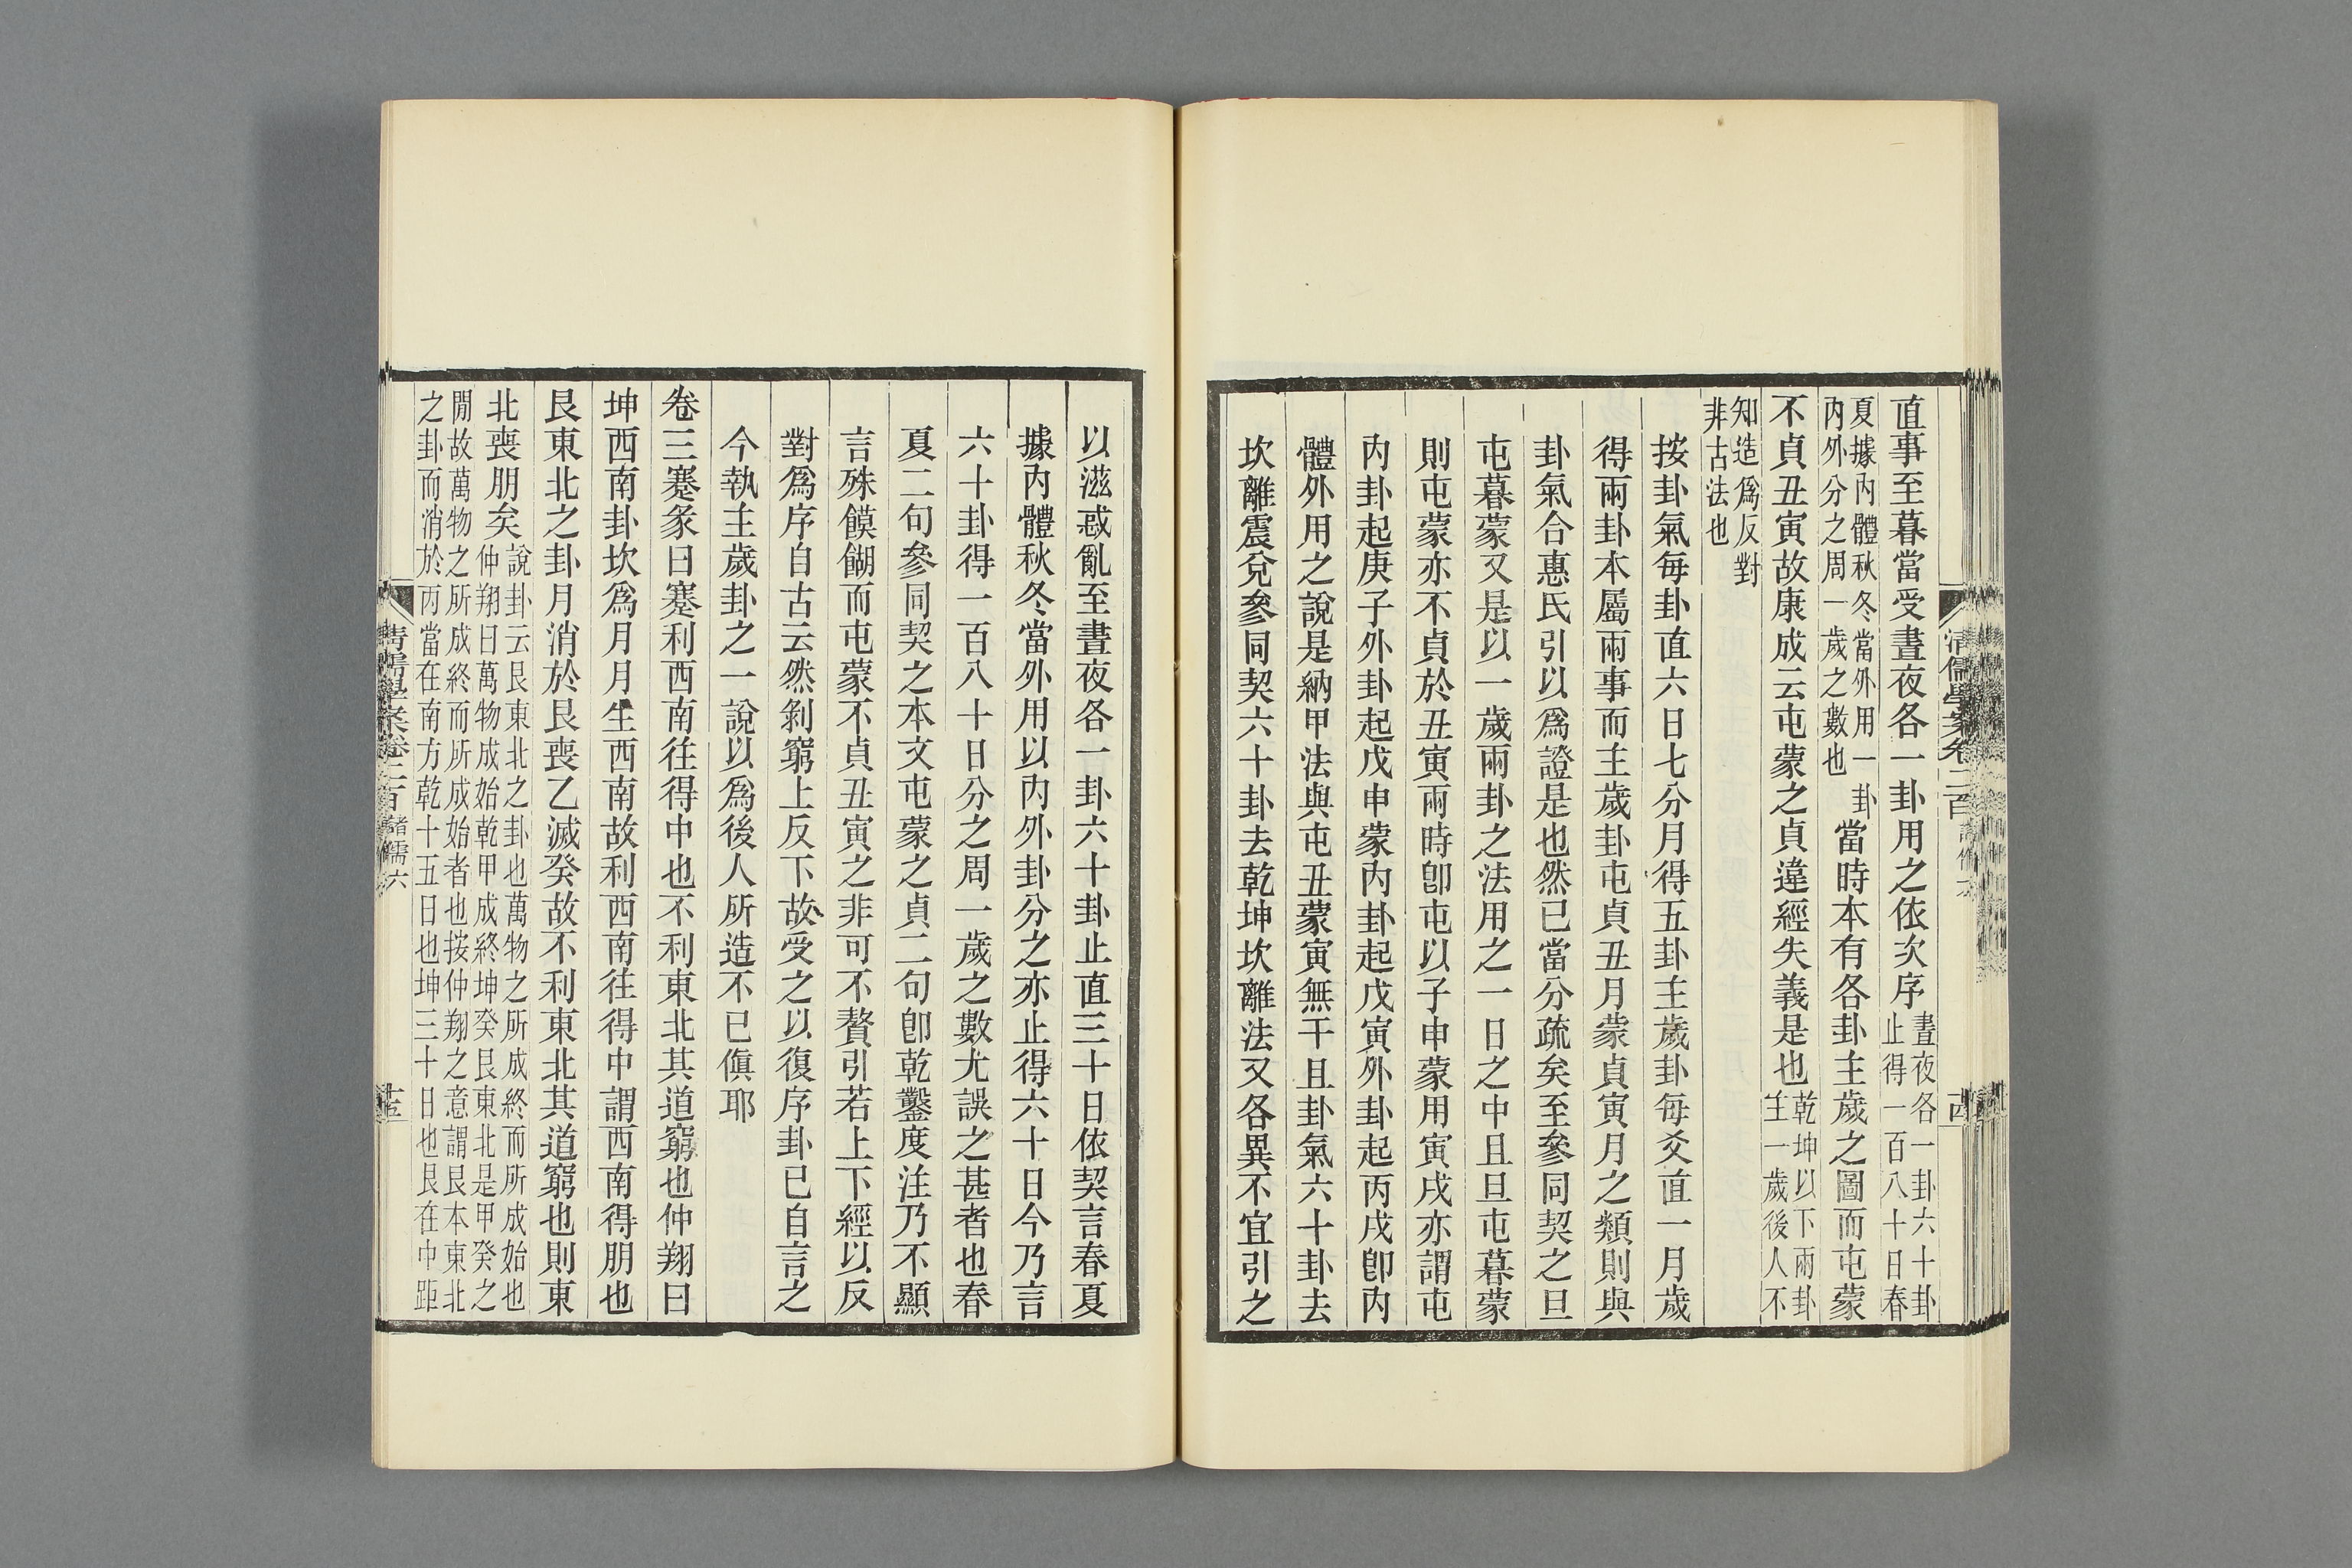 直事至暮當受晝夜各一卦用之依次序晝夜各一卦六十卦止得一百八十日春
夏據內體秋冬當外用一卦內外分之周一歲之數也當時本有各卦主歲之圖而屯蒙
不貞丑寅故康成云屯蒙之貞違經失義是也乾坤以下兩卦主一歲後人不
知造爲反對非古法也
按卦氣每卦直六日七分月得五卦主歲卦每爻直一月歲
得兩卦本屬兩事而主歲卦屯貞丑月蒙貞寅月之類則與
卦氣合惠氏引以爲證是也然已當分疏矣至參同契之旦
屯暮蒙又是以一歲兩卦之法用之一日之中且旦屯暮蒙
則屯蒙亦不貞於丑寅兩時卽屯以子申蒙用寅戌亦謂屯
內卦起庚子外卦起戊申蒙內卦起戊寅外卦起丙戌卽內
體外用之說是納甲法與屯丑蒙寅無干且卦氣六十卦去
坎離震兌參同契六十卦去乾坤坎離法又各異不宜引之
以滋惑亂至晝夜各一卦六十卦止直三十日依契言春夏
據內體秋冬當外用以內外卦分之亦止得六十日今乃言
六十卦得一百八十日分之周一歲之數尤誤之甚者也春
夏二句參同契之本文屯蒙之貞二句卽乾鑿度注乃不顯
言殊饃餬而屯蒙不貞丑寅之非可不贅引若上下經以反
對爲序自古云然剝窮上反下故受之以復序卦已自言之
今執主歲卦之一說以爲後人所造不已傎耶
卷三蹇彖曰蹇利西南往得中也不利東北其道窮也仲翔曰
坤西南卦坎爲月月生西南故利西南往得中謂西南得朋也
艮東北之卦月消於艮喪乙滅癸故不利東北其道窮也則東
北喪朋矣說卦云艮東北之卦也萬物之所成終而所成始也仲翔曰萬物成始乾甲成終坤癸艮東北是甲癸之
閒故萬物之所成終而所成始者也按仲翔之意謂艮本東北之卦而消於丙當在南方乾十五日也坤三十日也艮在中距
清儒學案卷二百 諸儒六